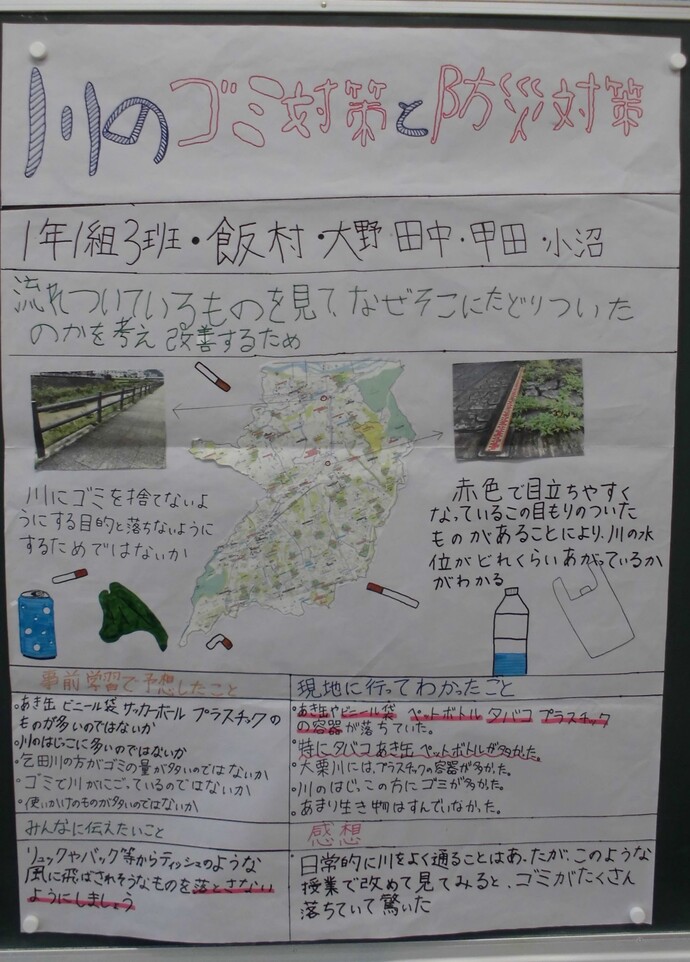 川のゴミ対策と防災対策
1年1組3班・飯村・大野・田中・甲田・小沼
流れついているものを見て、なぜそこにたどりついた
のかを考え改善するため
川にゴミを捨てないよ
うにする目的と落ちないように
するためではないか
赤色で目立ちやすく
なっているこの目もりのついた
ものがあることにより、川の水
位がどれくらいあがっているか
がわかる
事前学習で予想したこと
・あき缶 ビニール袋 サッカーボール プラスチックの
ものが多いのではないか
・川のはじっこに多いのではないか
・乞田川の方がゴミの量が多いのではないか
・ゴミで川がにごっているのではないか
・使いかけのものが多いのではないか
みんなに伝えたいこと
リュックやバック等からティッシュのような
風に飛ばされそうなものを落とさない
ようにしましょう
現地に行ってわかったこと
・あき缶やビニール袋 ペットボトル タバコ プラスチック
の容器が落ちていた。
・特にタバコ あき缶 ペットボトルが多かた。
・大栗川には、プラスチックの容器が多かた。
・川のはじっこの方にゴミが多かた。
・あまり生き物はすんでいなかった。
感想
・日常的に川をよく通ることはあったが、このような
授業で改めて見てみると、ゴミがたくさん
落ちていて驚いた